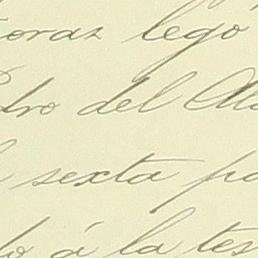 oraz legó
dro del Ala
sexta pa
do á la tes